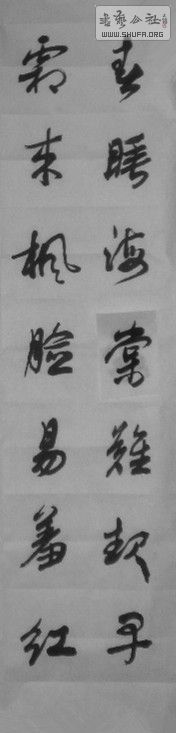 书艺公社
WWW.SHUFA.ORG
春睡海棠难契早
霜来枫脸易羞红